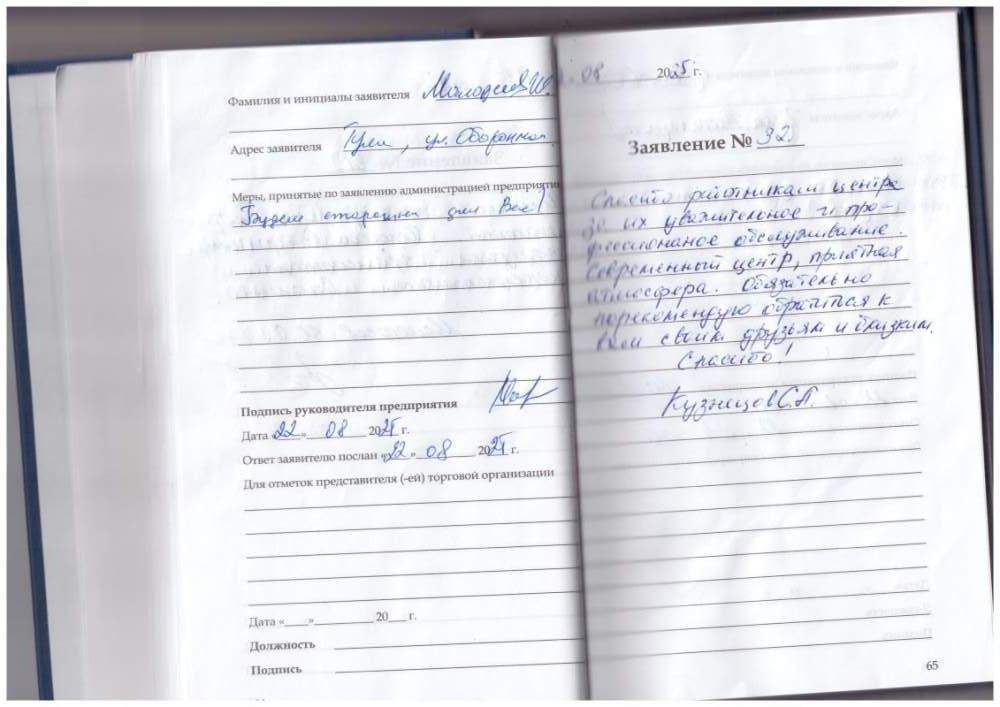 Фамилия и инициалы заявителя
Адрес заявителя Тула, ул. Оборонная
Меры, принятые по заявлению администрацией предприятия
Будем стараться для Вас!
Подпись руководителя предприятия
Дата «22» 08 2025 г.
Ответ заявителю послан «22» 08 2025 г.
Для отметок представителя (-ей) торговой организации
Дата «___»__________ 20___ г.
Должность
Подпись
08 2025 г.
Заявление № 32.
Спасибо работникам центра
за их уважительное и про-
фессионаное обслуживание.
Современный центр, приятная
атмосфера. Обязательно
порекомендую обратиться к
вам своим друзьям и близким.
Спасибо!
Кузнецов С.П.
65